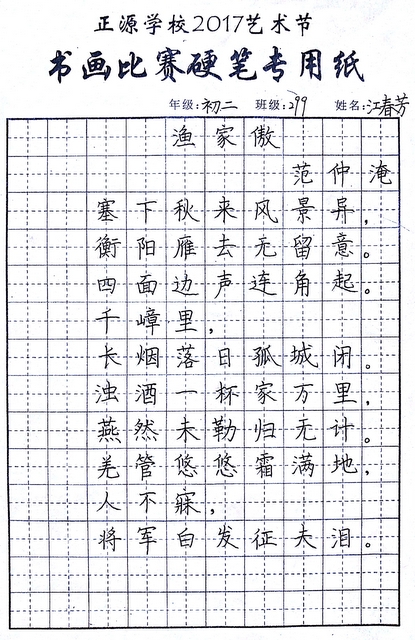 正源学校2017艺术节
书画比赛硬笔专用纸
年级:初二 班级:299 姓名:江春芳
渔家傲
范仲淹
塞下秋来风景异,
衡阳雁去无留意。
四面边声连角起。
千嶂里,
长烟落日孤城闭。
浊酒一杯家万里,
燕然未勒归无计。
羌管悠悠霜满地,
人不寐,
将军白发征夫泪。